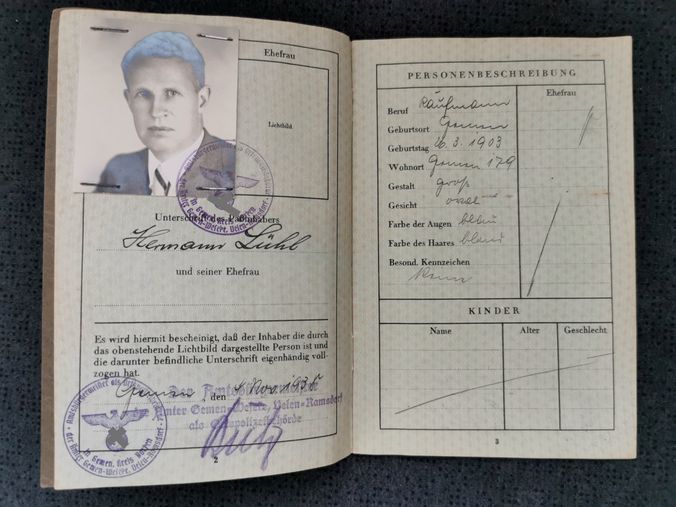 Ehefrau
Lichtbild
Unterschrift des Paßinhabers
Hermann Lühl
und seiner Ehefrau
Es wird hiermit bescheinigt, daß der Inhaber die durch
das obenstehende Lichtbild dargestellte Person ist und
die darunter befindliche Unterschrift eigenhändig voll-
zogen hat.
Gemen, den Nov. 193
Der Amtsbürgermeister
der Ämter Gemen-Weseke, Velen-Ramsdorf
als Ortspolizeibehörde
in Gemen, Kreis Borken
2
PERSONENBESCHREIBUNG
Ehefrau
Beruf Kaufmann
Geburtsort Gemen
Geburtstag 26.3.1903
Wohnort Gemen 179
Gestalt groß
Gesicht oval
Farbe der Augen blau
Farbe des Haares blond
Besond. Kennzeichen
Keine
KINDER
Name Alter Geschlecht
3